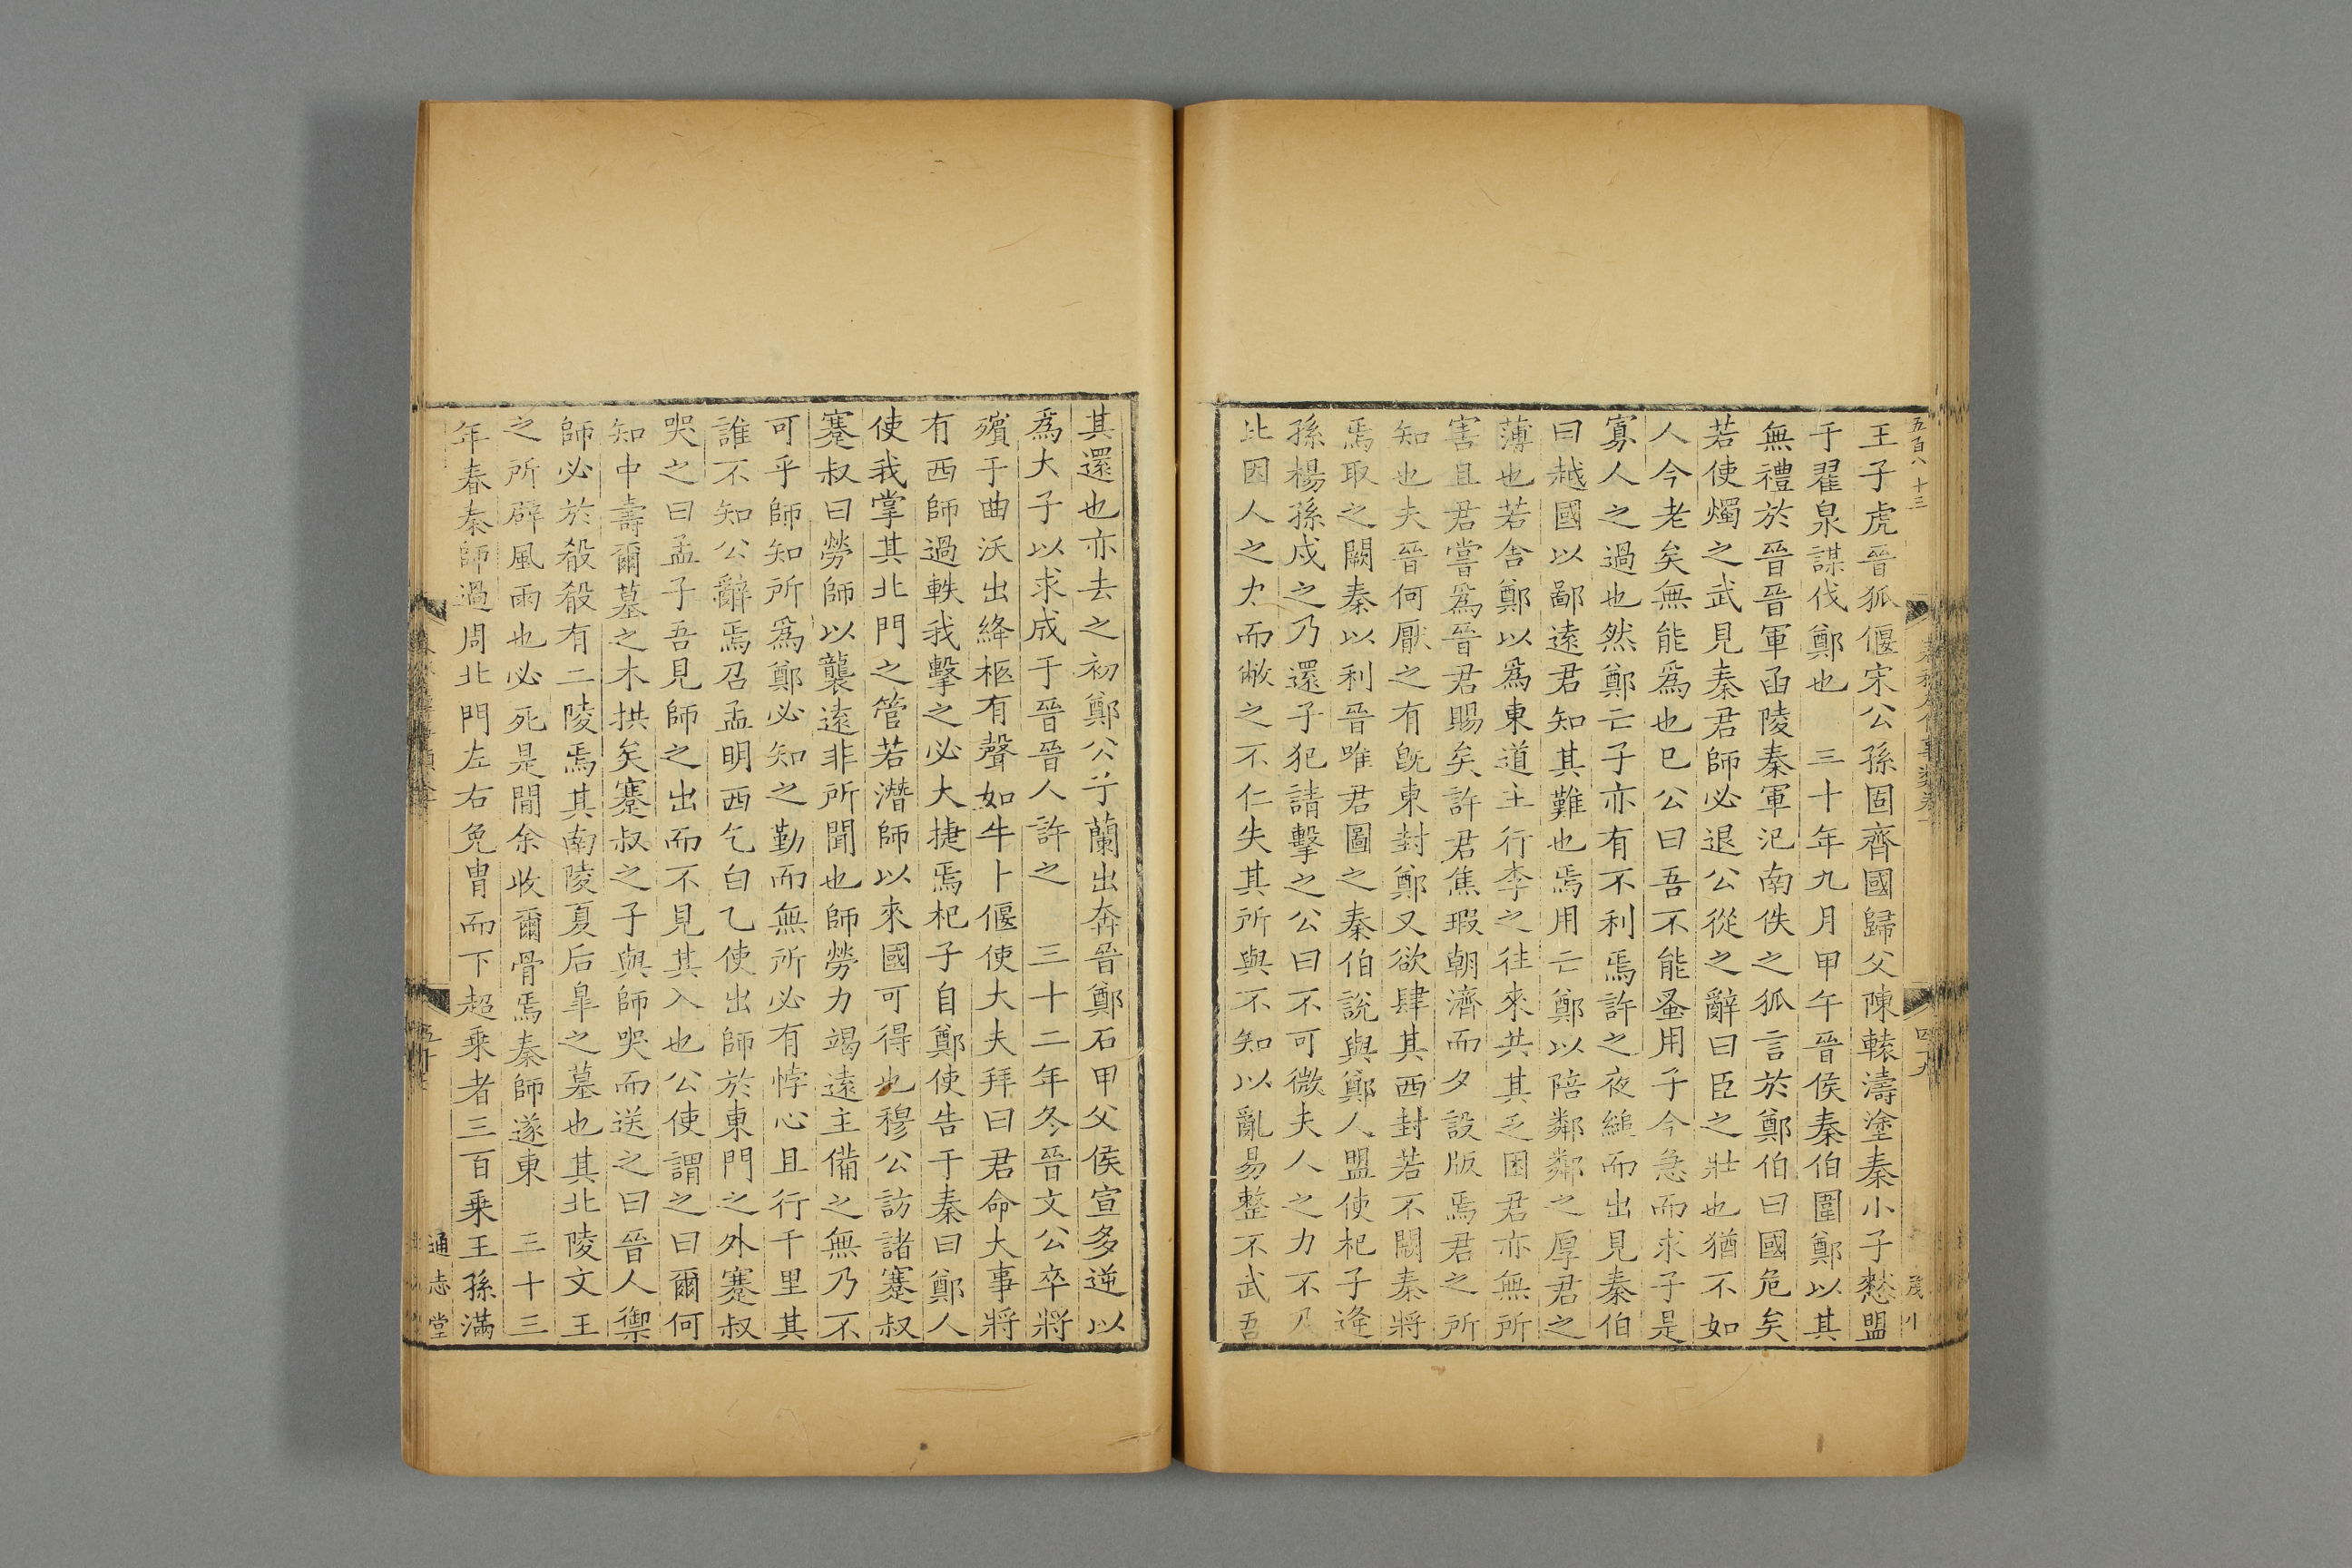 五百八十三
王子虎晉狐偃宋公孫固齊國歸父陳轅濤塗秦小子憖盟
于翟泉謀伐鄭也 三十年九月甲午晉侯秦伯圍鄭以其
無禮於晉晉軍函陵秦軍汜南佚之狐言於鄭伯曰國危矣
若使燭之武見秦君師必退公從之辭曰臣之壯也猶不如
人今老矣無能爲也巳公曰吾不能蚤用子今急而求子是
寡人之過也然鄭亡子亦有不利焉許之夜縋而出見秦伯
曰越國以鄙遠君知其難也焉用亡鄭以陪鄰鄰之厚君之
薄也若舍鄭以爲東道主行李之往來共其乏困君亦無所
害且君嘗爲晉君賜矣許君焦瑕朝濟而夕設版焉君之所
知也夫晉何厭之有旣東封鄭又欲肆其西封若不闕秦將
焉取之闕秦以利晉唯君圖之秦伯說與鄭人盟使杞子逢
孫楊孫戍之乃還子犯請擊之公曰不可微夫人之力不及
此因人之力而敝之不仁失其所與不知以亂易整不武吾
其還也亦去之初鄭公子蘭出奔晉鄭石甲父侯宣多逆以
爲大子以求成于晉晉人許之 三十二年冬晉文公卒將
殯于曲沃出絳柩有聲如牛卜偃使大夫拜曰君命大事將
有西師過軼我擊之必大捷焉杞子自鄭使告于秦曰鄭人
使我掌其北門之管若潛師以來國可得也穆公訪諸蹇叔
蹇叔曰勞師以襲遠非所聞也師勞力竭遠主備之無乃不
可乎師知所爲鄭必知之勤而無所必有悖心且行千里其
誰不知公辭焉召孟明西乞白乙使出師於東門之外蹇叔
哭之曰孟子吾見師之出而不見其入也公使謂之曰爾何
知中壽爾墓之木拱矣蹇叔之子與師哭而送之曰晉人禦
師必於殽殽有二陵焉其南陵夏后皐之墓也其北陵文王
之所辟風雨也必死是閒余收爾骨焉秦師遂東 三十三
年春秦師過周北門左右免冑而下超乗者三百乗王孫滿
通志堂